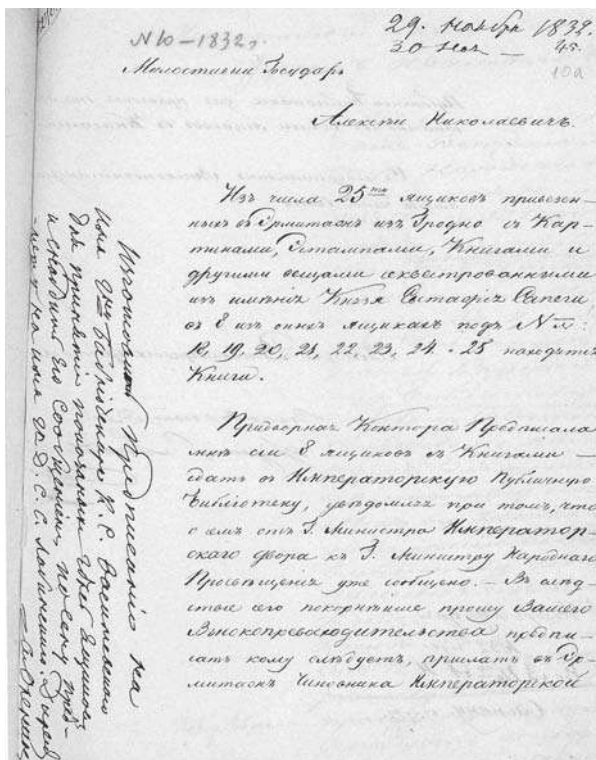 29. Ноября 1832.
№ 10 – 1832 г.
30 Ноя —
10а
Милостивый Государь
Алексей Николаевичь.
Изъ числа 25ти ящиковъ привезен-
ныхъ въ Эрмитажъ изъ Гродно съ Кар-
тинами, Эстампами, Книгами и
другими вещами секвестрованными
изъ имѣнія Князя Евстафія Сапеги
въ 8 изъ оныхъ ящикахъ подъ №
19, 20, 21, 22, 23, 24 25 находятся
Книги.
Придворная Контора Предписала
мнѣ сіи 8 ящиковъ съ Книгами —
сдать въ Императорскую Публичную
Библіотеку, увѣдомляя при томъ, что
о семъ отъ Г. Министра Император-
скаго двора къ Г. Министру Народнаго
Просвѣщенія уже сообщено. — Въ слѣд-
ствіе сего покорнѣйше прошу Вашего
Высокопревосходительства предпи-
сать кому слѣдуетъ, прислать въ Эр-
митажъ Чиновника Императорской
Изготовить Предписаніе на
имя Библіотекаря К. С. Васильевскаго
для принятія показанныхъ здѣсь ящиковъ
и снабдить его Сообщеніемъ по сему пред-
мету на имя Д. С. С. Лабинскаго.